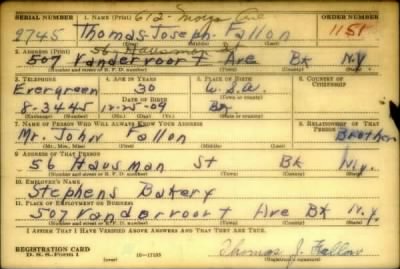 SERIAL NUMBER 1. NAME (Print) 612 - Ave ORDER NUMBER
2745 Thomas Joseph Fallon 1151
56 Hausman St
2. ADDRESS (Print)
507 Vandervoort Ave Bk N.Y
(Number and street or R. F. D. number) (Town) (County) (State)
3. TELEPHONE 4. AGE IN YEARS 5. PLACE OF BIRTH 6. COUNTRY OF CITIZENSHIP
Evergreen 30 U.S.A.
DATE OF BIRTH
8-3445 12-25-09 Bk
(Exchange) (Number) (Mo.) (Day) (Yr.) (Town) (State)
7. NAME OF PERSON WHO WILL ALWAYS KNOW YOUR ADDRESS 8. RELATIONSHIP OF THAT PERSON
Mr. John Fallon Brother
(Mr., Mrs., Miss) (First) (Middle) (Last)
9. ADDRESS OF THAT PERSON
56 Hausman St Bk N.y.
(Number and street or R. F. D. number) (Town) (County) (State)
10. EMPLOYER'S NAME
Stephens Bakery
11. PLACE OF EMPLOYMENT OR BUSINESS
507 Vandervoort Ave Bk N.y.
(Number and street or R. F. D. number) (Town) (County) (State)
I AFFIRM THAT I HAVE VERIFIED ABOVE ANSWERS AND THAT THEY ARE TRUE.
REGISTRATION CARD
D. S. S. Form 1 16-17105 Thomas J. Fallon
(Registrant's signature)